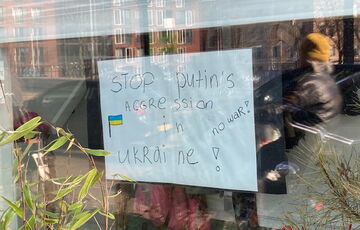 STOP putin's
AGGRESSION
in no war!
UKRaine!